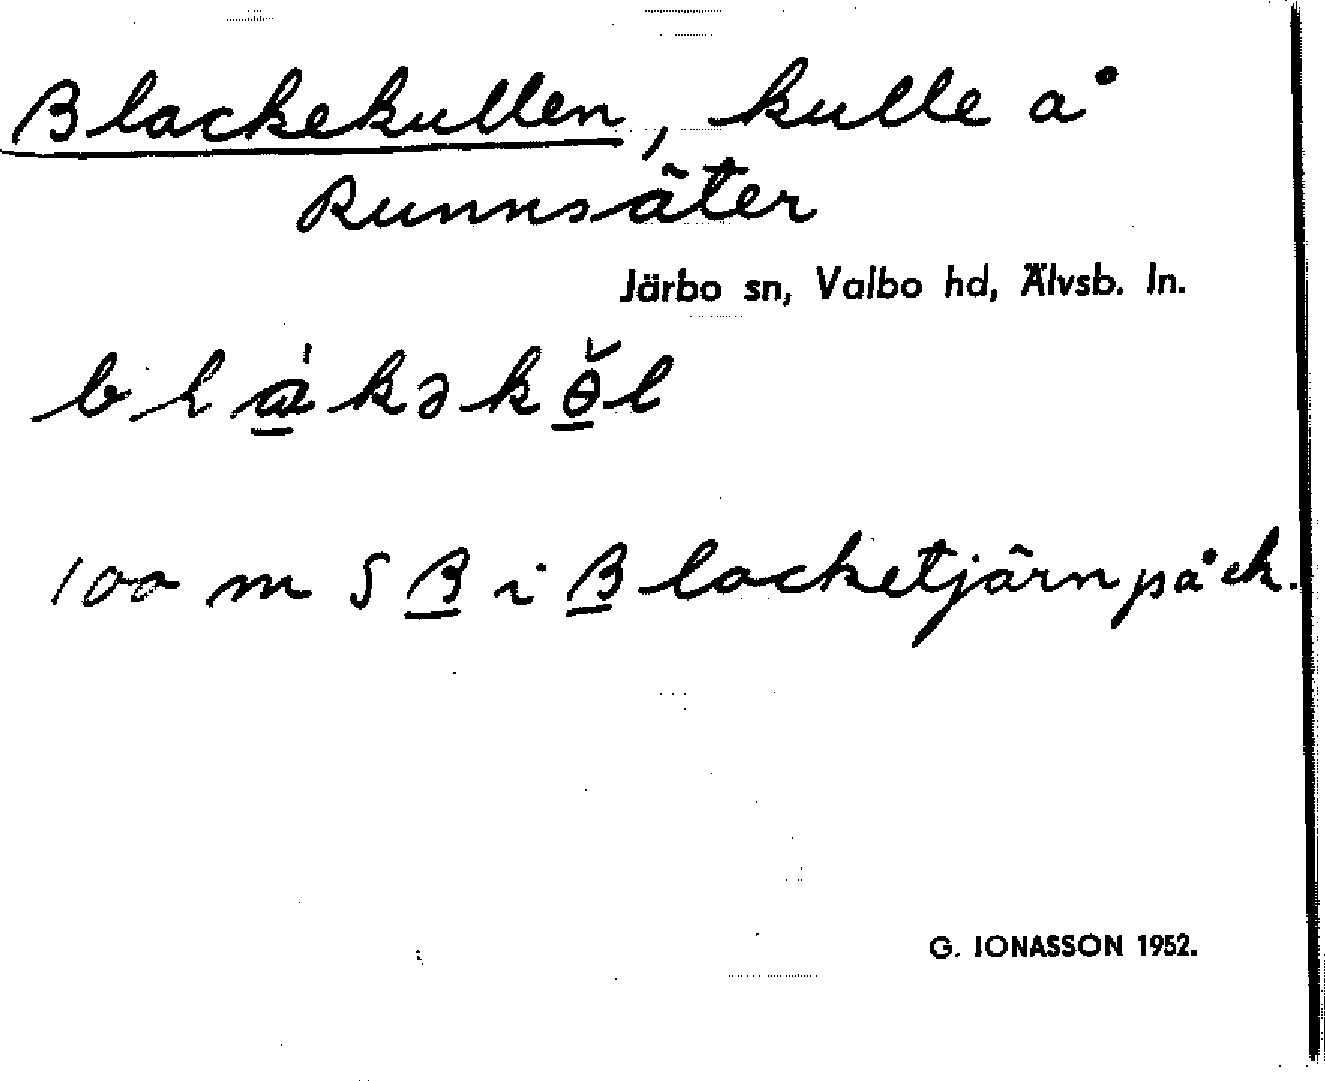 Blackekullen, kulle å
Runnsäter
Järbo sn, Valbo hd, Älvsb. ln.
bla̱̍kəkɵ̱̌l
100 m S B̲ i B̲lacketjärn på ek.
G. IONASSON 1952.